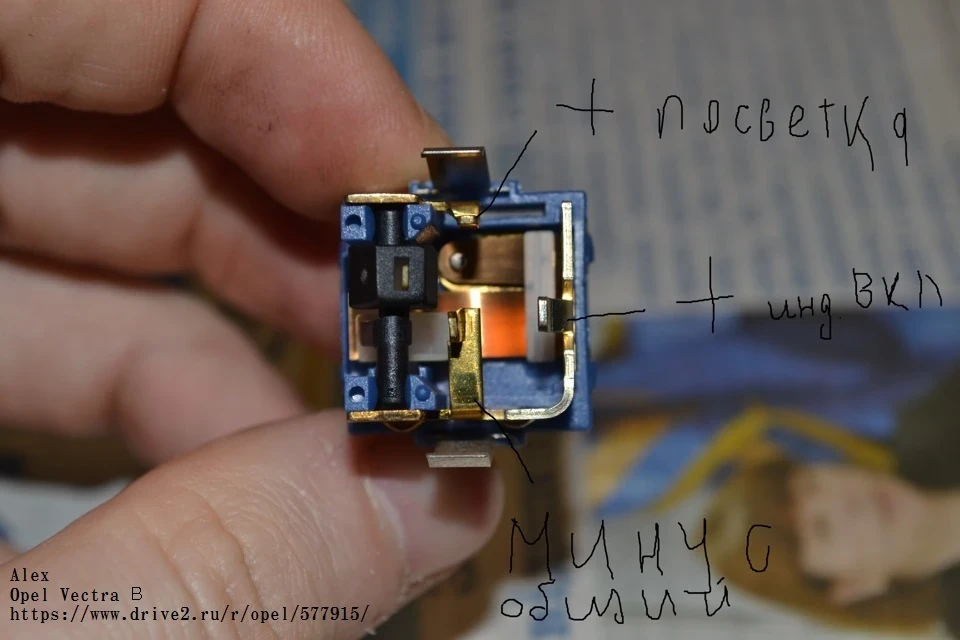 + посветка
+ инд. вкл
минус
общий
Alex
Opel Vectra B
https://www.drive2.ru/r/opel/577915/